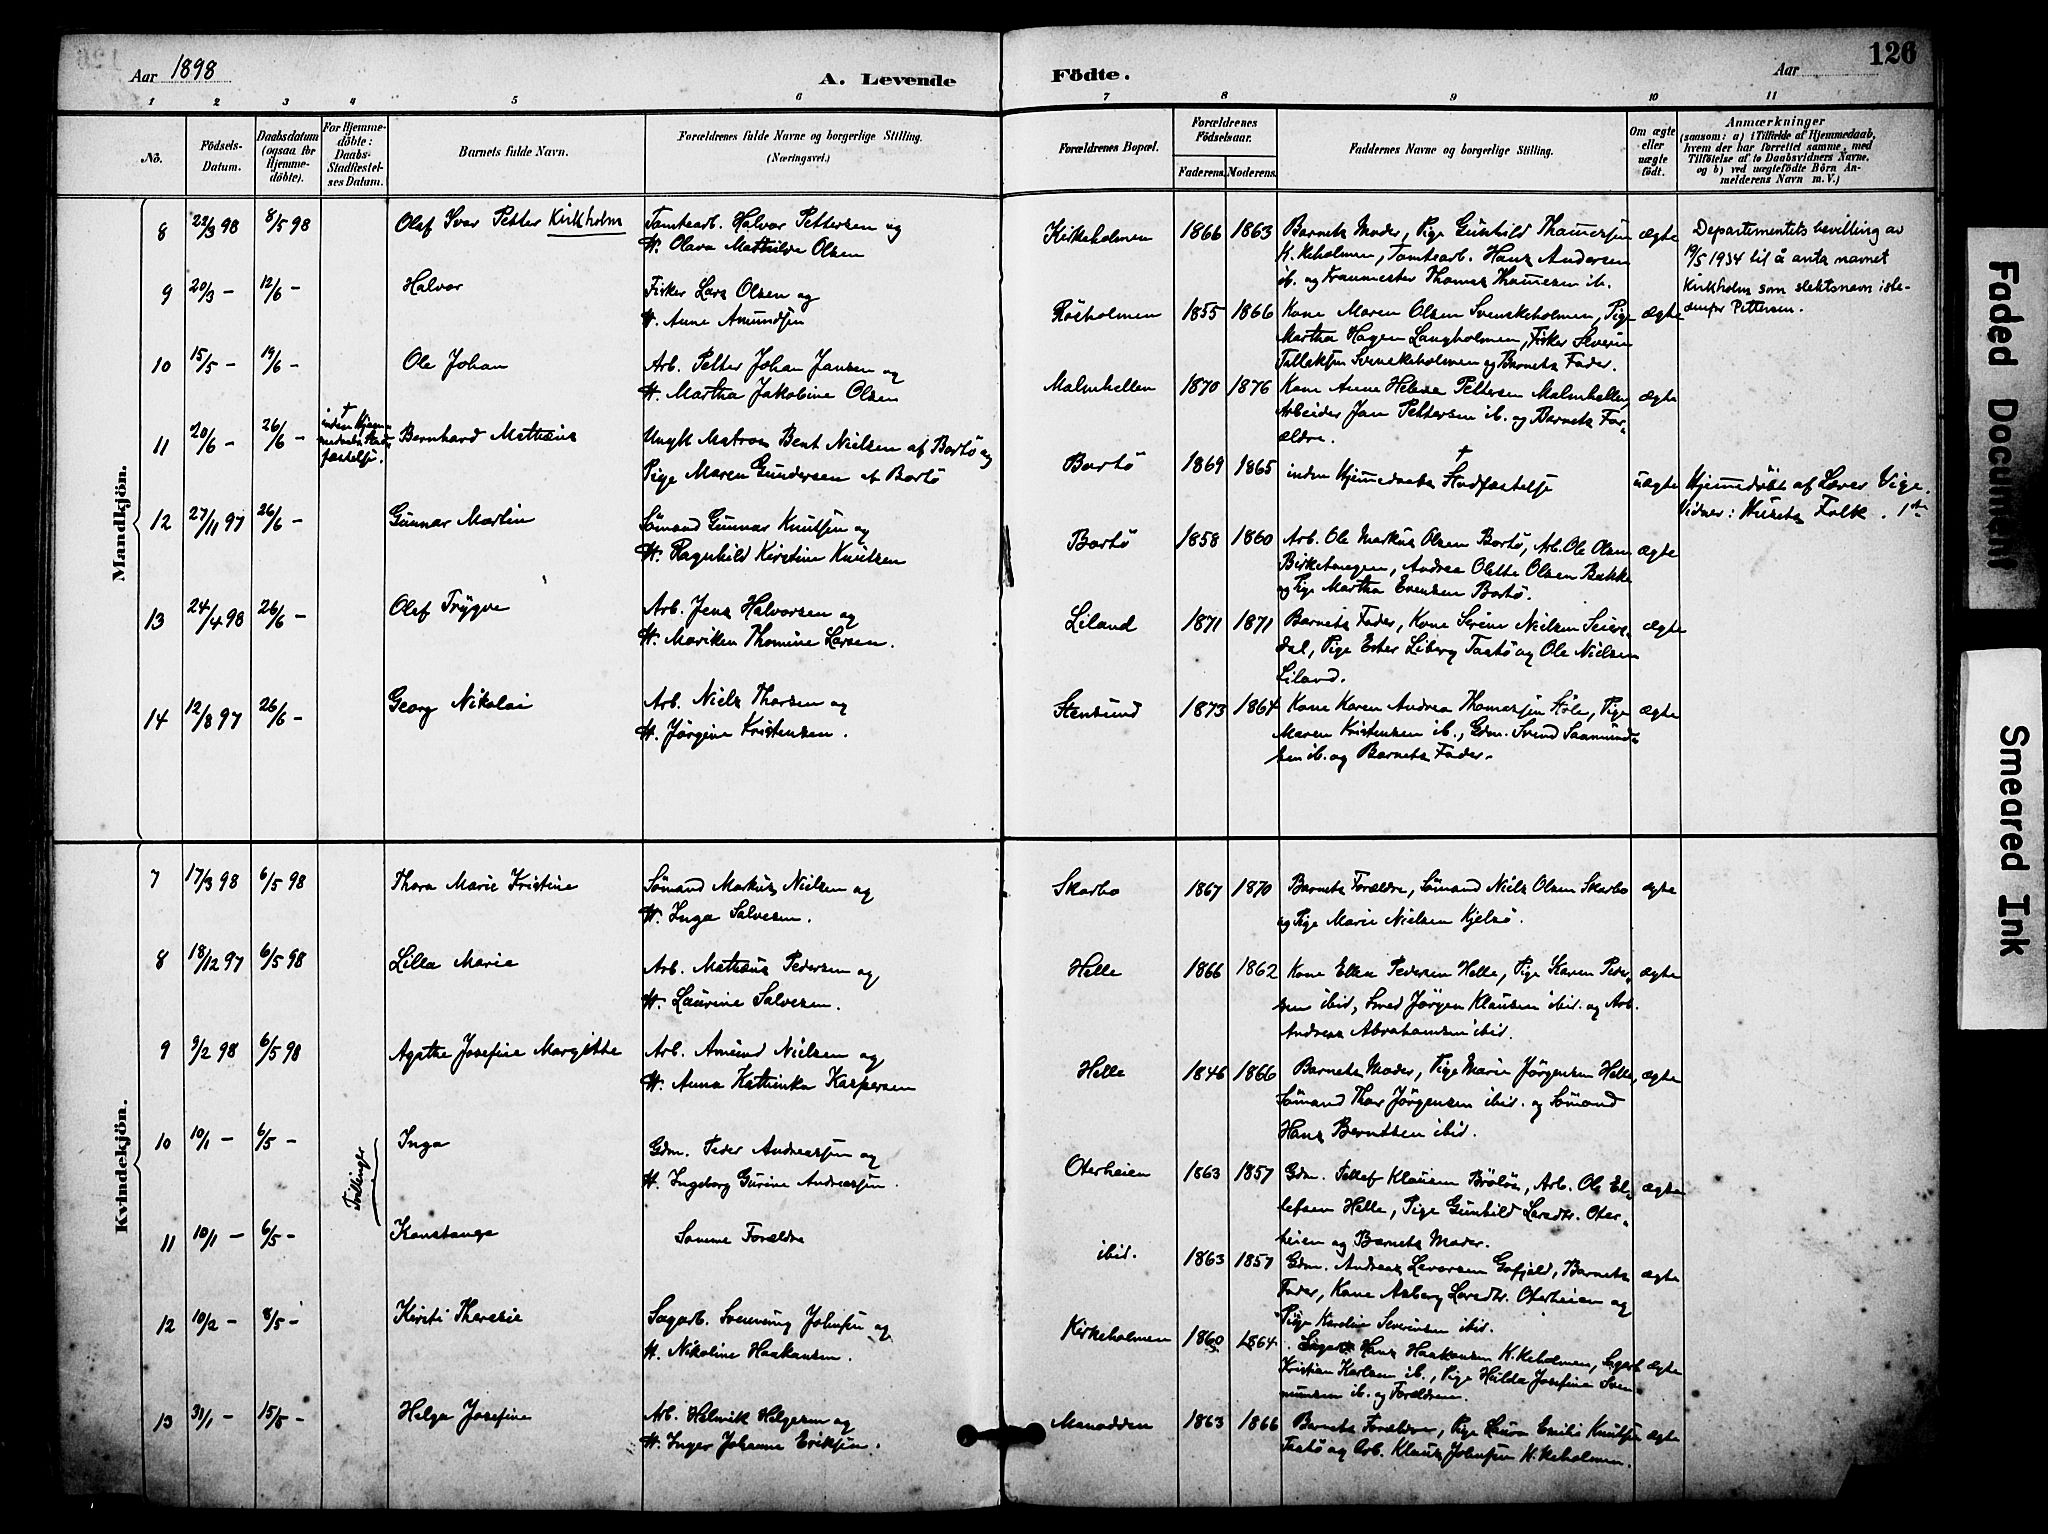 126
Aar 1898
A. Levende
Födte.
Aar
1 2 3 4 5 6 7 8 9 10 11
No.
Födsels-
Datum.
Daabsdatum
(ogsaa for
Hjemme-
döbte).
For Hjemme-
döbte:
Daabs-
Stadfæstel-
ses Datum.
Barnets fulde Navn.
Forældrenes fulde Navne og borgerlige Stilling.
(Næringsvei.)
Forældrenes Bopæl.
Forældrenes
Födselsaar.
Faderens. Moderens.
Faddernes Navne og borgerlige Stilling.
Om ægte
eller
uægte
födt.
Anmærkninger
(saasom: a) i Tilfælde af Hjemmedaab,
hvem der har forrettet samme, med
Tilföielse af to Daabsvidners Navne,
og b) ved uægtefödte Börn An-
melderens Navn m. V.)
Mandkjön.
8 22/3 98 8/5 98 Olaf Ivar Petter Kirkholm Tomtearb. Halvor Pettersen og
H. Olava Mathilde Olsen
Kirkeholmen 1866 1863 Barnets Moder, Pige Gunhild Thomessen ægte
K.keholmen, Tomtearb. Hans Andersen
ib. og Thomas Thomesen ib.
Departementets bevilling av
19/5 1934 til å anta navnet
Kirkholm som slektsnavn iste-
denfor Pettersen.
9 20/3 – 12/6 – Halvor Fisker Lars Olsen og
H. Anne Amundsen
Rösholmen 1855 1866 Kone Maren Olsen Svenskeholmen, Pige ægte
Martha Hagen Langholmen, Fisker Severin
Tellefsen Svenskeholmen og Barnets Fader.
10 15/5 – 19/6 – Ole Johan Arb. Petter Johan Jansen og
H. Martha Jakobine Olsen
Malmhellen 1870 1876 Kone Anne Helene Pettersen Malmhellen, ægte
Arbeider Jan Pettersen ib. og Barnets For-
ældre.
11 20/6 – 26/6 – † inden Hjem-
medaabs Stad-
fæstelse.
Bernhard Mathæus Ungk. Matros Bent Nielsen af Bortö og
Pige Maren Gundersen af Bortö
Bortö 1869 1865 † inden Hjemmedaabs Stadfæstelse uægte Hjemmedöbt af Lærer Vige.
Vidner: Husets Folk. 1ste
12 27/11 97 26/6 – Gunnar Martin Sömand Gunnar Knutsen og
H. Ragnhild Kirstine Knutsen
Bortö 1858 1860 Arb. Ole Markus Olsen Bortö, Arb. Ole Olsen ægte
Andrea Olette Olsen Bakke
og Pige Martha Evensen Bortö.
13 24/4 98 26/6 – Olaf Trygve Arb. Jens Halvorsen og
H. Mariken Thomine Larsen.
Liland 1871 1871 Barnets Fader, Kone Serine Nielsen Seiers- ægte
dal, Pige Ester Liberg Tastö og Ole Nielsen
Liland.
14 12/8 97 26/6 – Georg Nikolai Arb. Niels Thorsen og
H. Jörgine Kristensen.
Stensund 1873 1864 Kone Karen Andrea Thomassen Stöle, Pige ægte
Maren Kristensen ib., Gdm. Svend Saamund-
sen ib. og Barnets Fader.
Kvindekjön.
7 17/3 98 6/5 98 Thora Marie Kristine Sömand Markus Nielsen og
H. Inga Salvesen.
Skarbo 1867 1870 Barnets Forældre, Sömand Niels Olsen Skarbo ægte
og Pige Marie Nielsen Kjelsö.
8 18/12 97 6/5 98 Lilla Marie Arb. Mathæus Pedersen og
H. Laurine Salvesen.
Helle 1866 1862 Kone Ellen Pedersen Helle, Pige Karen Peder- ægte
sen ibid, Smed Jörgen Klausen ibid. og Arb.
Andreas Abrahamsen ibid.
9 9/2 98 6/5 98 Agathe Josefine Margitte Arb. Amund Nielsen og
H. Anna Kathinka Kaspersen
Helle 1846 1866 Barnets Moder, Pige Marie Jörgensen Helle, ægte
Sömand Thor Jörgensen ibid. og Sömand
Hans Berntsen ibid.
Tvillinger
10 10/1 – 6/5 – Inga Gdm. Peder Andreassen og
H. Ingeborg Gurine Andreassen.
Oterheien 1863 1857 Gdm. Tellef Klausen Brölös, Arb. Ole El- ægte
lefsen Helle, Pige Gunhild Larsdtr. Oter-
heien og Barnets Moder.
11 10/1 – 6/5 – Konstanse Samme Forældre
ibid. 1863 1857 Gdm. Andreas Levorsen Gofjeld, Barnets ægte
Fader, Kone Asberg Larsdtr. Oterheien og
Pige Karoline Severinsen ibid.
12 10/2 – 8/5 – Kirsti Theresie Sagarb. Svenning Johnsen og
H. Nikoline Haakansen.
Kirkeholmen 1860 1864 Sagarb. Hans Haakansen K.keholmen, Sagarb. ægte
Kristian Karlsen ib., Pige Hilda Josefine Sven-
ningsen ib. og Forældrene.
13 31/1 – 15/5 – Helga Josefine Arb. Helmik Helgesen og
H. Inger Johanne Eriksen.
Monodden 1863 1866 Barnets Forældre, Pige Laura Emilie Knutsen ægte
Tastö og Arb. Klaus Johnsen K.keholmen.
Faded Document
Smeared Ink